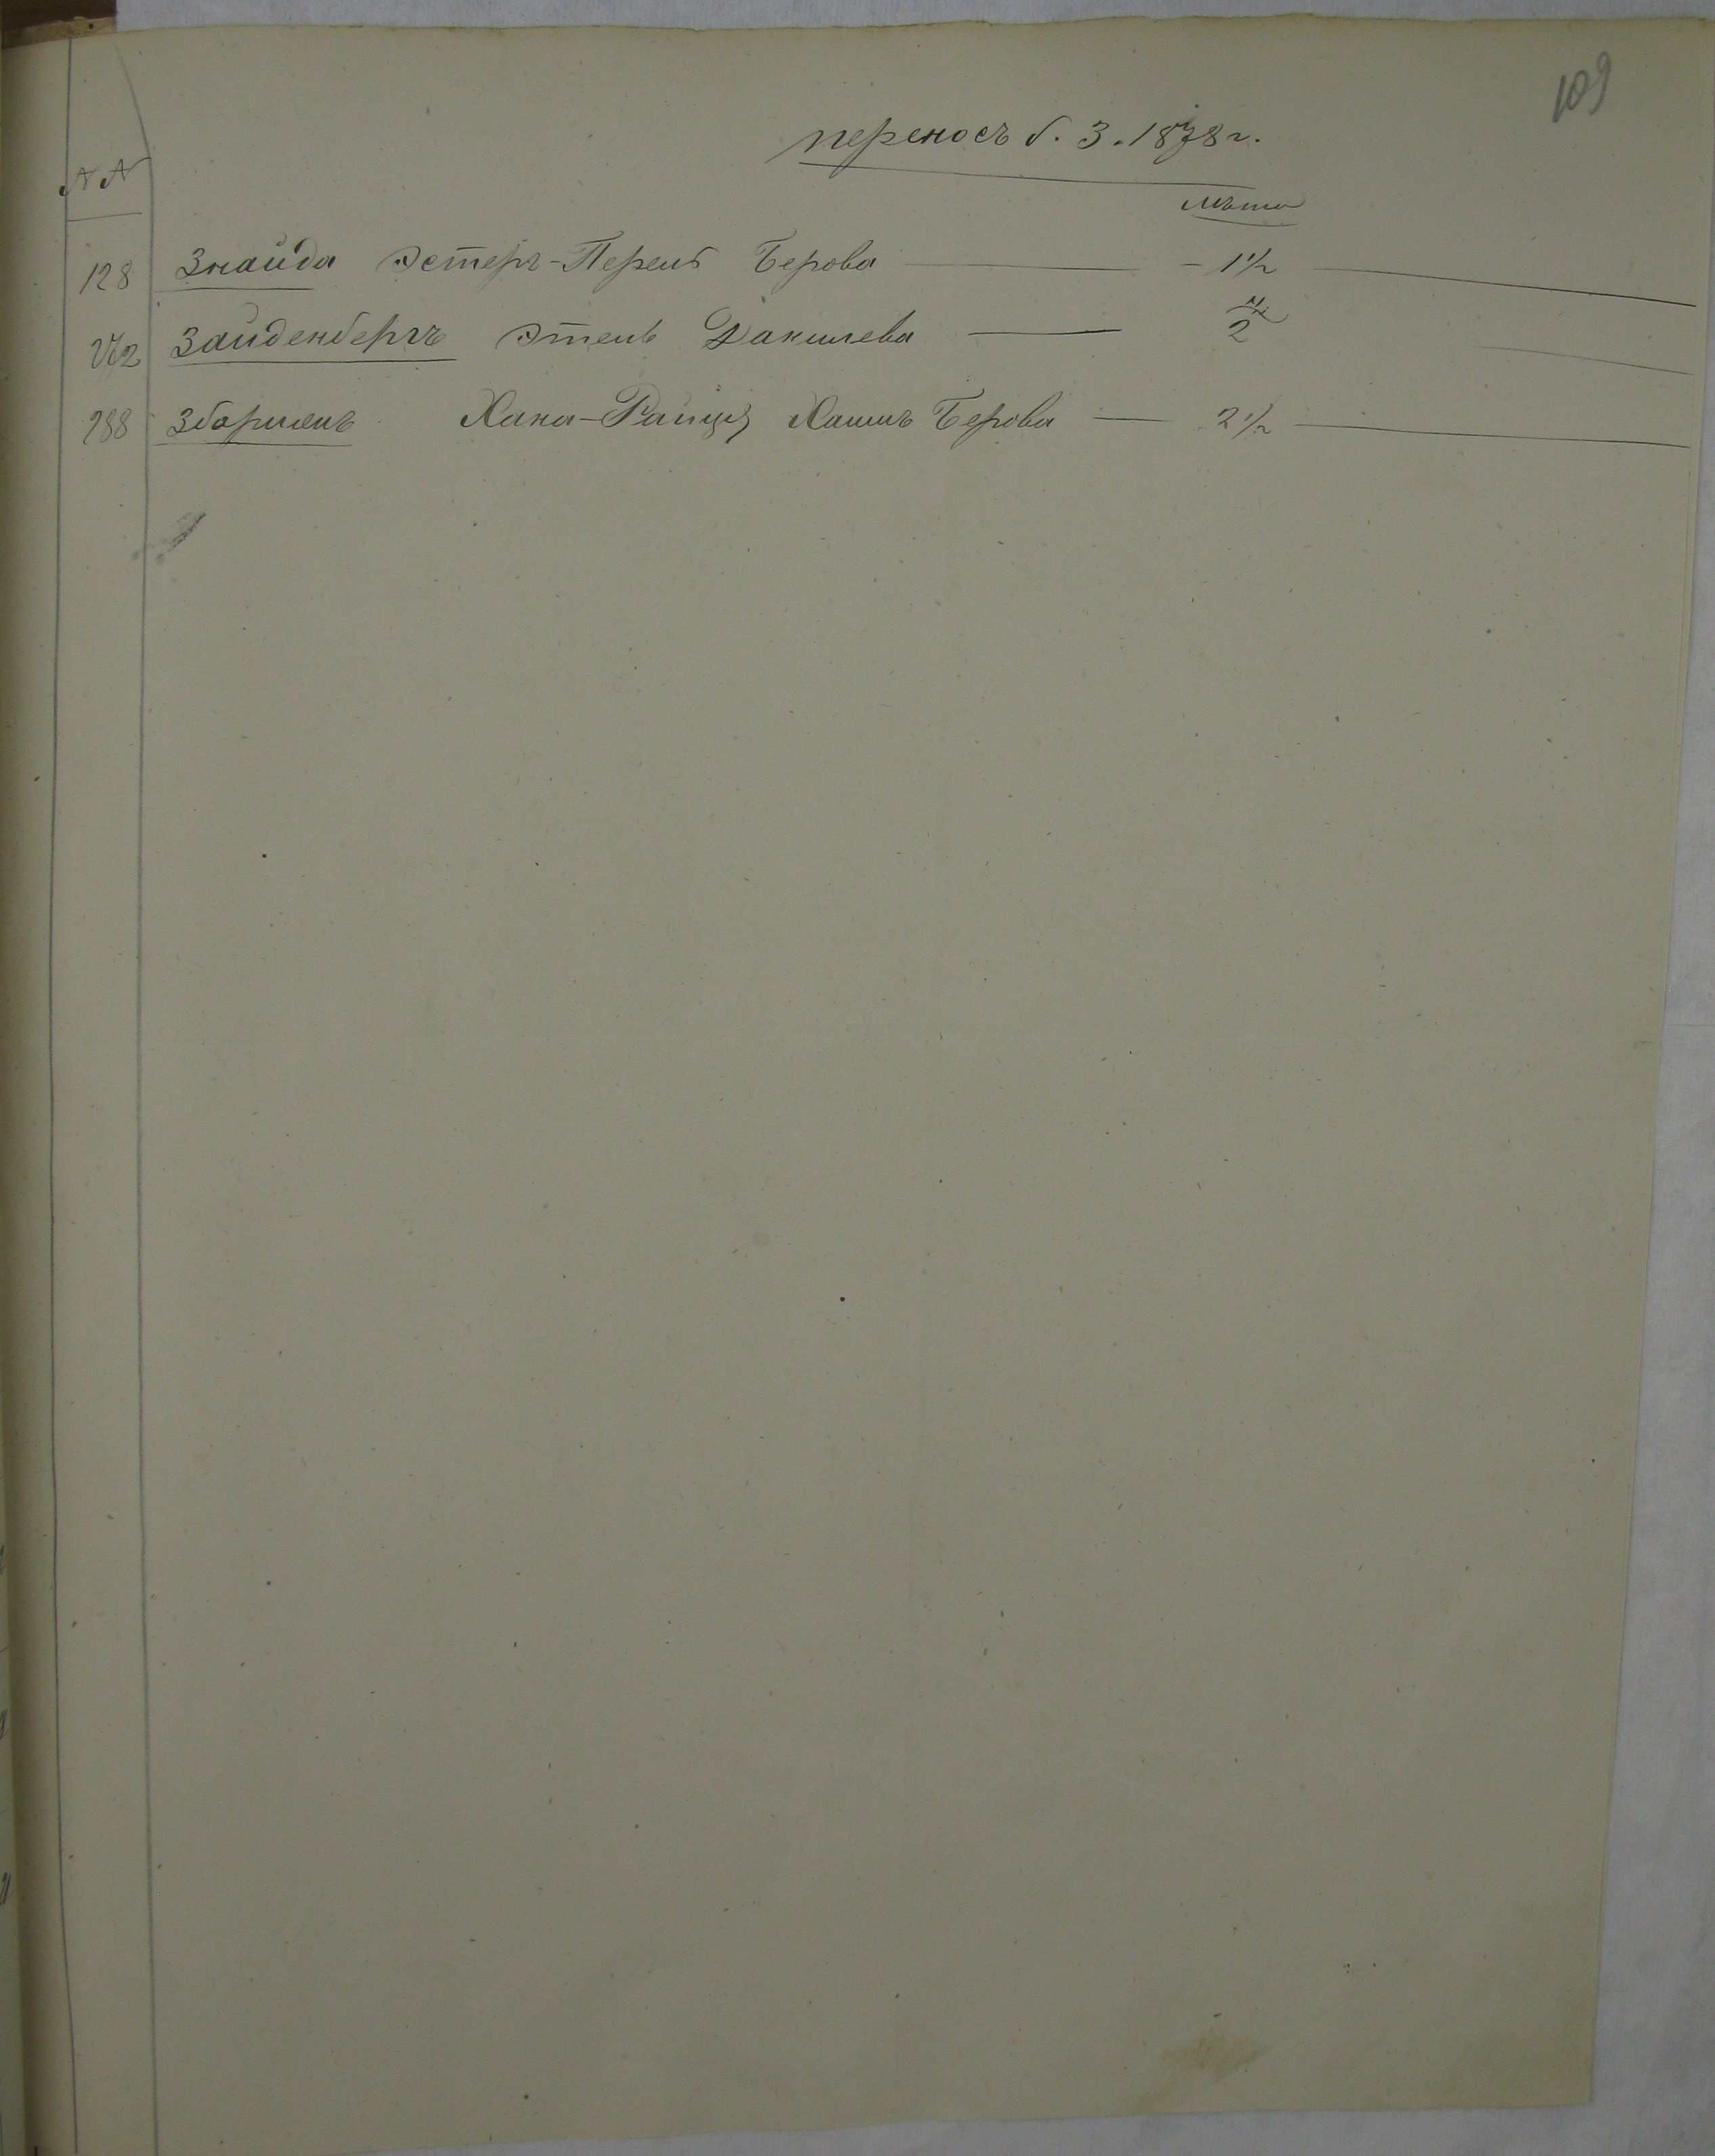 109
переносъ б. З. 1878 г.
NN
лѣта
128 Знайда Эстеръ-Перель Берова — 1 1/2
Зайденбергъ Этель Данилева — 2
288 Хана-Райця Хаимъ Берова — 2 1/2